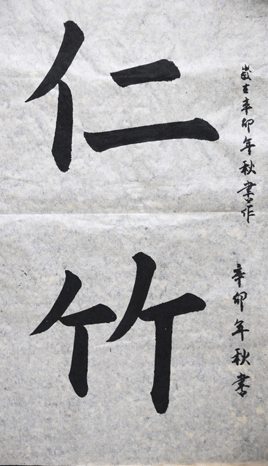 仁
竹
歲吉辛卯年秋業作
辛卯年秋書